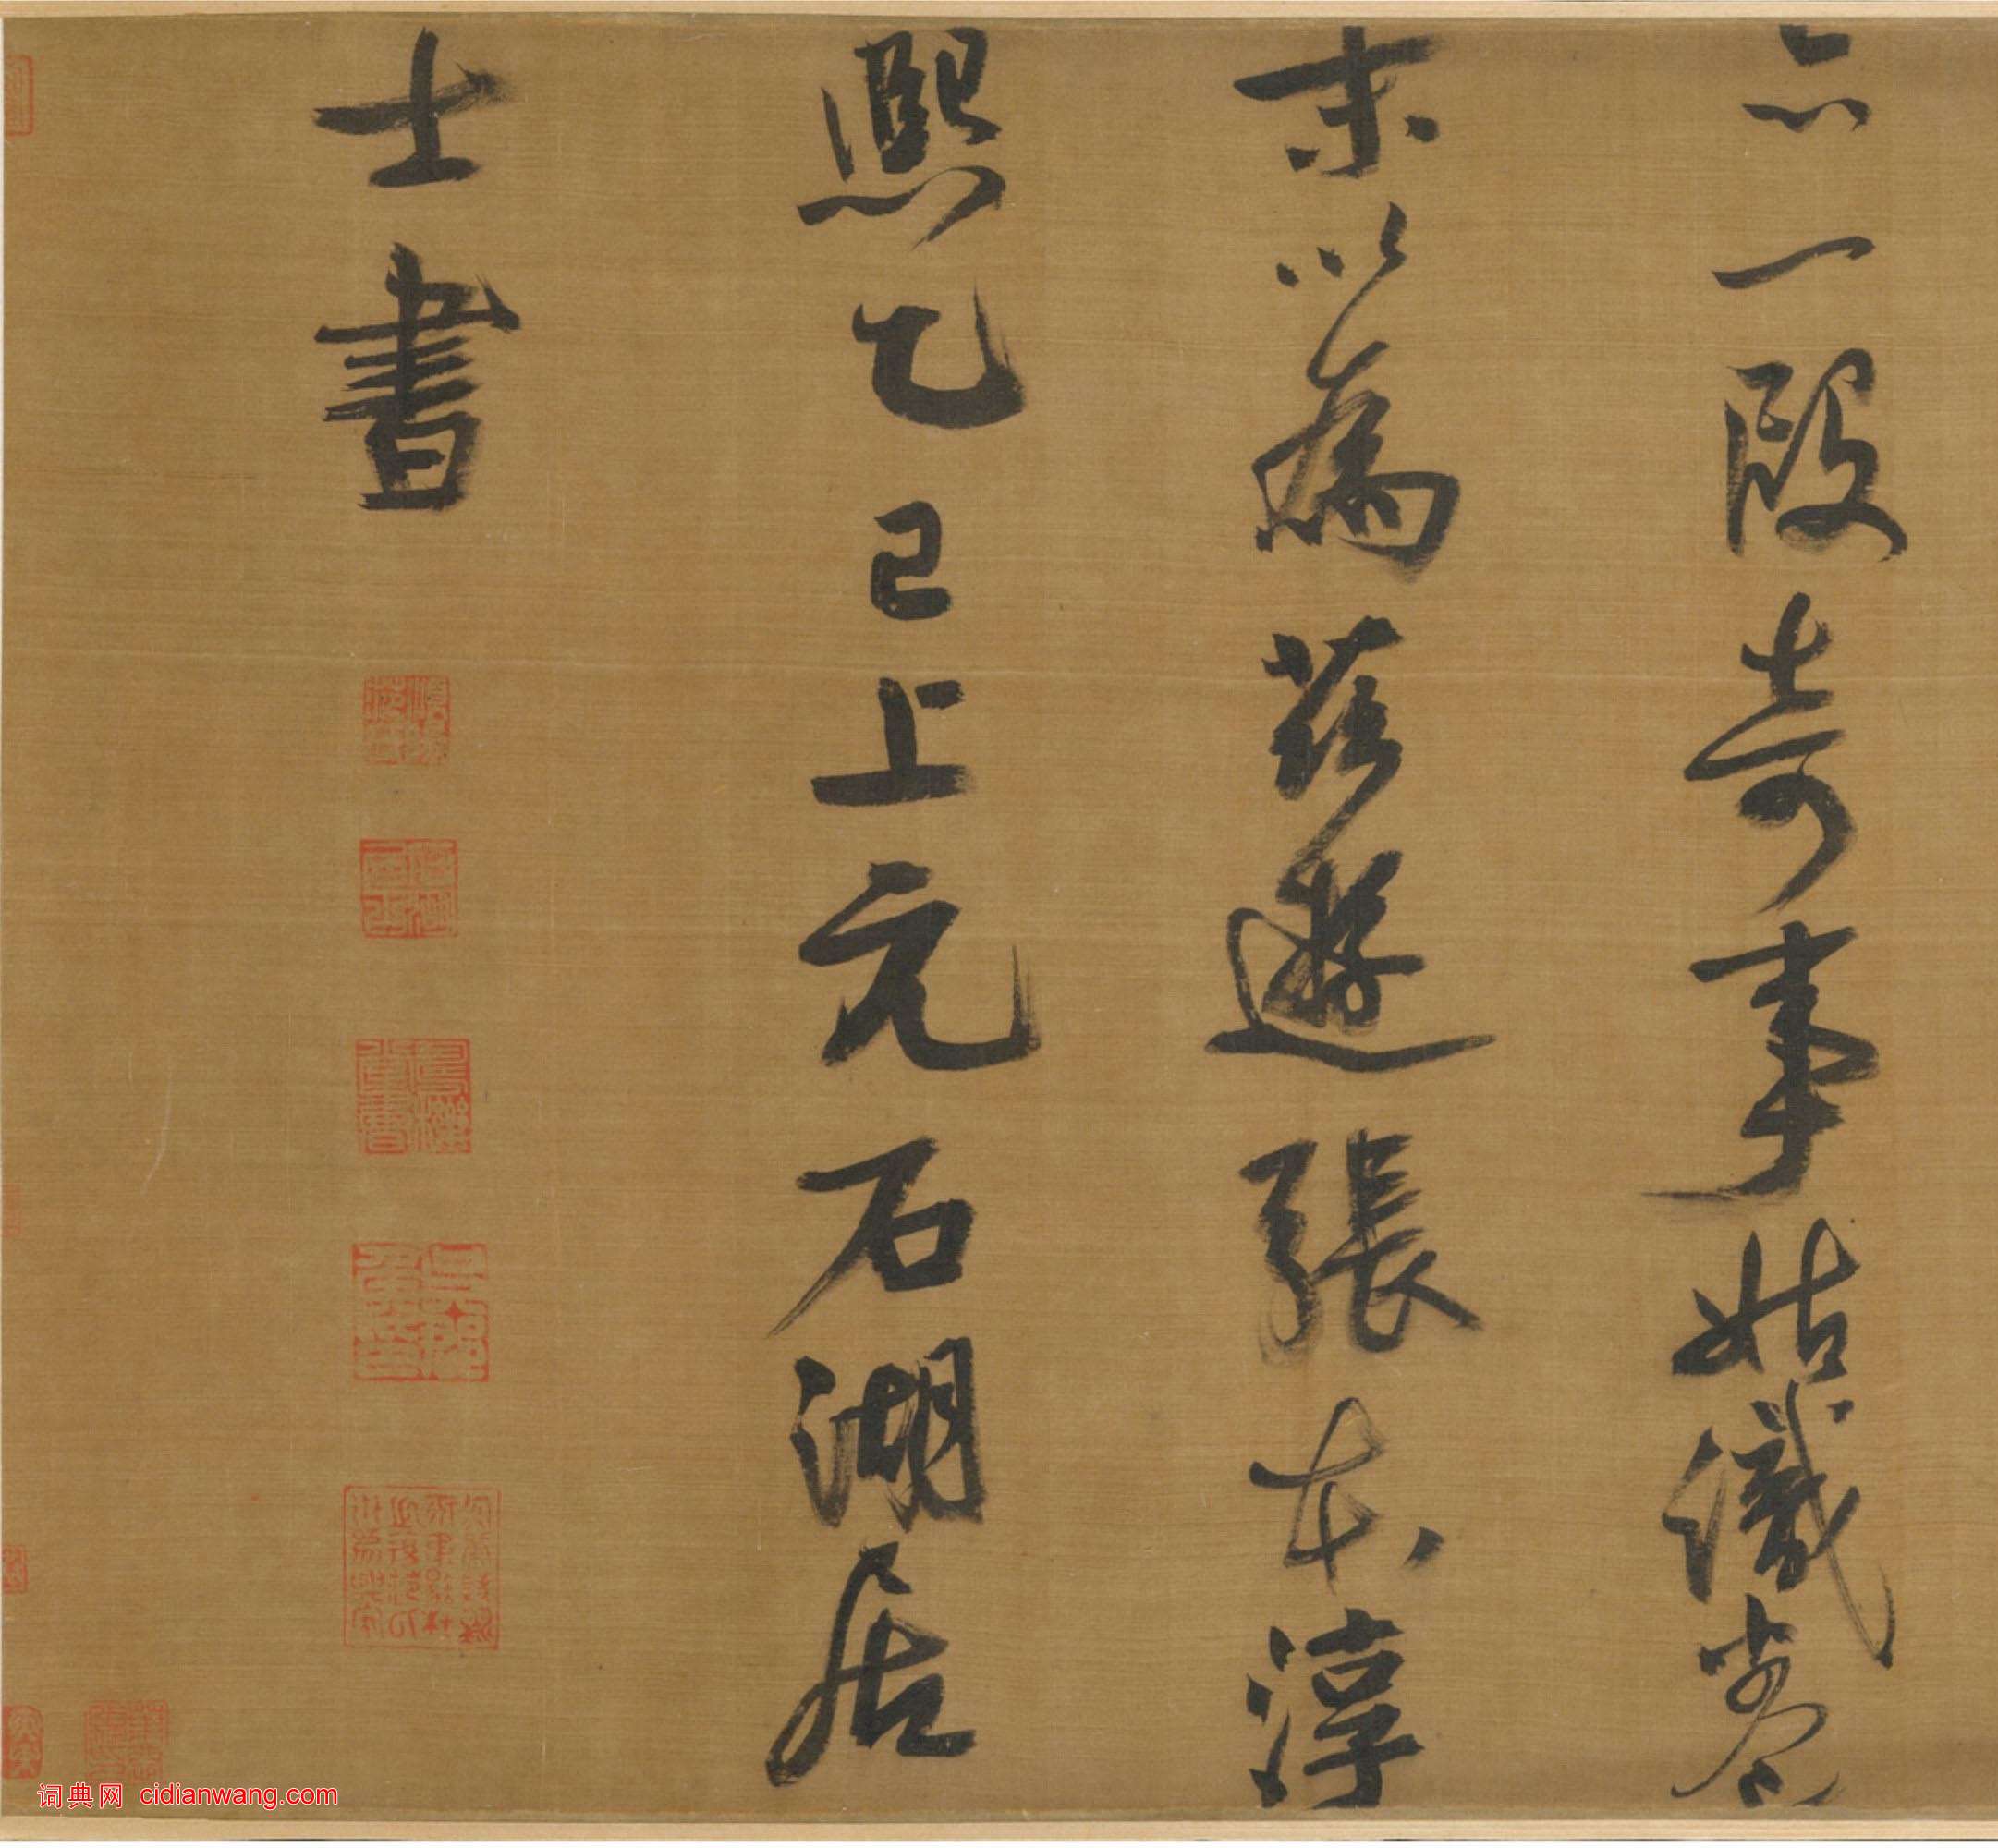 亦一段奇事姑識卷
末以為茲遊張本淳
熙乙巳上元石湖居
士書
词典网 cidianwang.com